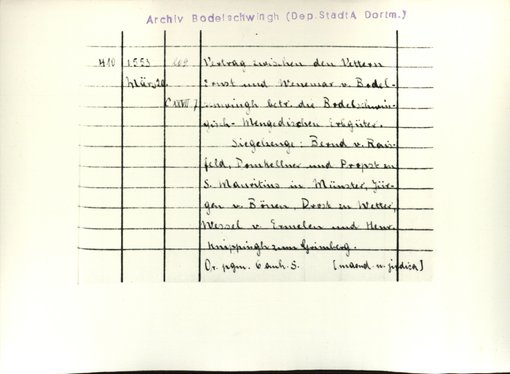 Archiv Bodelschwingh (Dep. StadtA Dortm.)
410 1553 Vertrag zwischen den Vettern
März 20. Ernst und Wennemar v. Bodel-
schwingh betr. die Bodelschwin-
gisch-Mengedischen Erbgüter.
Siegelzeuge: Bernd v. Rais-
feld, Domkellner und Propst zu
S. Mauritius in Münster, Jür-
gen v. Bönen, Drost zu Wetter,
Wessel v. Ermelen und Henr.
Knippingh zum Grimberg.
Or. pgm. 6 anh. S.